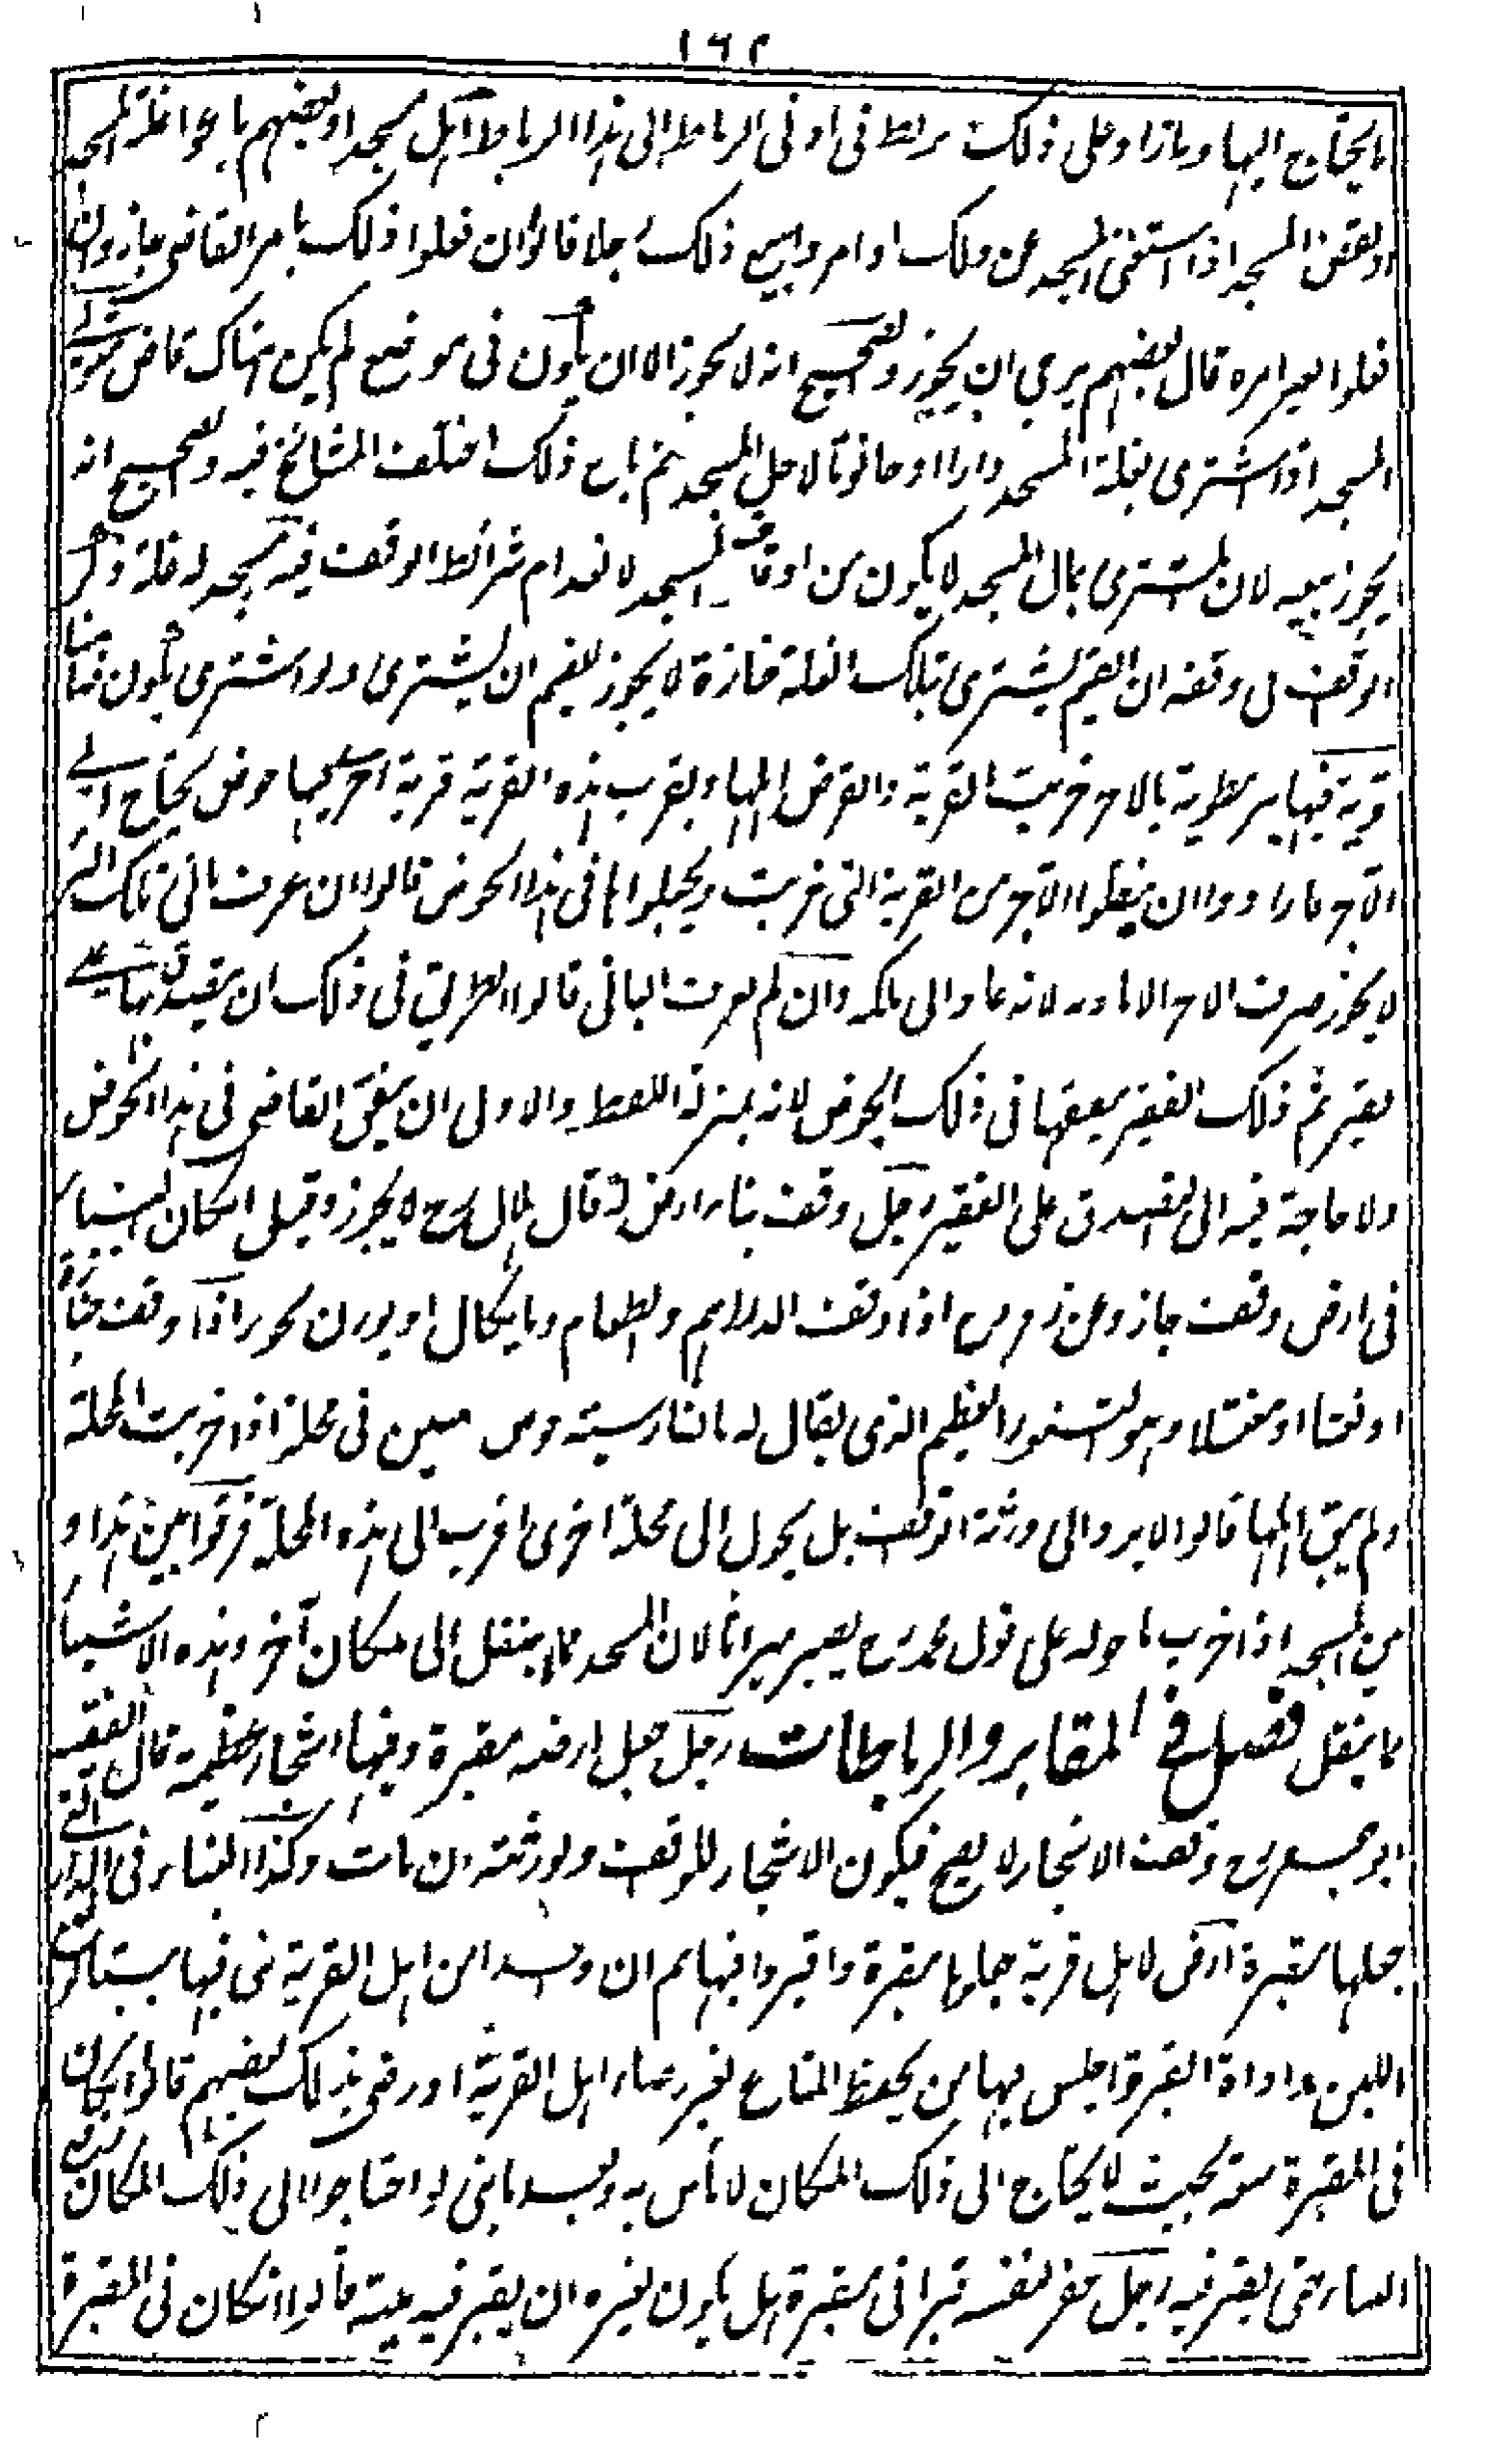 ١٦٢
ما يحتاج اليها وما زاد على ذلك يربط في ادنى الرباط الى هذا الرباط اهل مسجد او بعضهم باعوا غلة المسجد
او نقض المسجد اذا استغنى المسجد عن ذلك او امروا ببيع ذلك رجلا قالوا ان فعلوا ذلك بامر القاضي جاز وان
فعلوا بغير امره قال بعضهم يرجى ان يجوز والصحيح انه لا يجوز الا ان يكون في موضع لم يكن هناك قاض متولي
المسجد اذا اشترى بغلة المسجد دارا او حانوتا لاجل المسجد ثم باع ذلك اختلف المشائخ فيه والصحيح انه
يجوز بيعه لان المشترى بمال المسجد لا يكون من اوقاف المسجد لانعدام شرائط الوقف فيه مسجد له غلة وذكر
الوقف في وقفه ان القيم يشتري بتلك الغلة جنازة لا يجوز للقيم ان يشتري ولو اشترى يكون ضامنا
قرية فيها بير مطوية بالاجر خربت القرية وانقرض اهلها وبقرب هذه القرية قرية اخرى فيها حوض يحتاج الى
الاجر فارادوا ان ينقلوا الاجر من القرية التي خربت ويجعلوها في هذا الحوض قالوا ان عرف باني تلك البئر
لا يجوز صرف الاجر الا باذنه لانه عاد الى ملكه وان لم يعرف الباني قالوا الطريق في ذلك ان يتصدق بها على
فقير ثم ذلك الفقير ينفقها في ذلك الحوض لانه بمنزلة اللقطة والاولى ان ينفق القاضي في هذا الحوض
ولا حاجة فيه الى التصدق على الفقير رجل وقف بناء بدون ارض قال هلال رح لا يجوز وقيل ان كان البناء
في ارض وقف جاز وعن زفر رح اذا وقف الدراهم والطعام وما يكال او يوزن يجوز اذا وقف جنازة
او نعشا او مغتسلا وهو التنور العظيم الذي يقال له بالفارسية حوض مسين في محلة اذا خربت المحلة
ولم يبق اهلها قالوا لا يرد الى ورثة الواقف بل يحول الى محلة اخرى اقرب الى هذه المحلة فرقوا بين هذا و
بين المسجد اذا خرب ما حوله على قول محمد رح يصير ميراثا لان المسجد مما لا ينقل الى مكان آخر وهذه الاشياء
مما ينقل فصل في المقابر والرباطات رجل جعل ارضه مقبرة وفيها اشجار عظيمة قال الفقيه
ابو جعفر رح وقف الاشجار لا يصح فيكون الاشجار للواقف ولورثته ان مات وكذا البناء في الدار التي
جعلها مقبرة ارض لاهل قرية جعلوها مقبرة واقبروا فيها ثم ان واحدا من اهل القرية بنى فيها بيتا لوضع
اللبن واداة القبر واجلس فيها من يحفظ المتاع بغير رضاء اهل القرية او رضي بذلك بعضهم قالوا ان كان
في المقبرة سعة بحيث لا يحتاج الى ذلك المكان لا باس به وبعد ما بنى لو احتاجوا الى ذلك المكان يرفع
البناء حتى يقبر فيه رجل حفر لنفسه قبرا في مقبرة هل يكون لغيره ان يقبر فيه ميته قالوا ان كان في المقبرة